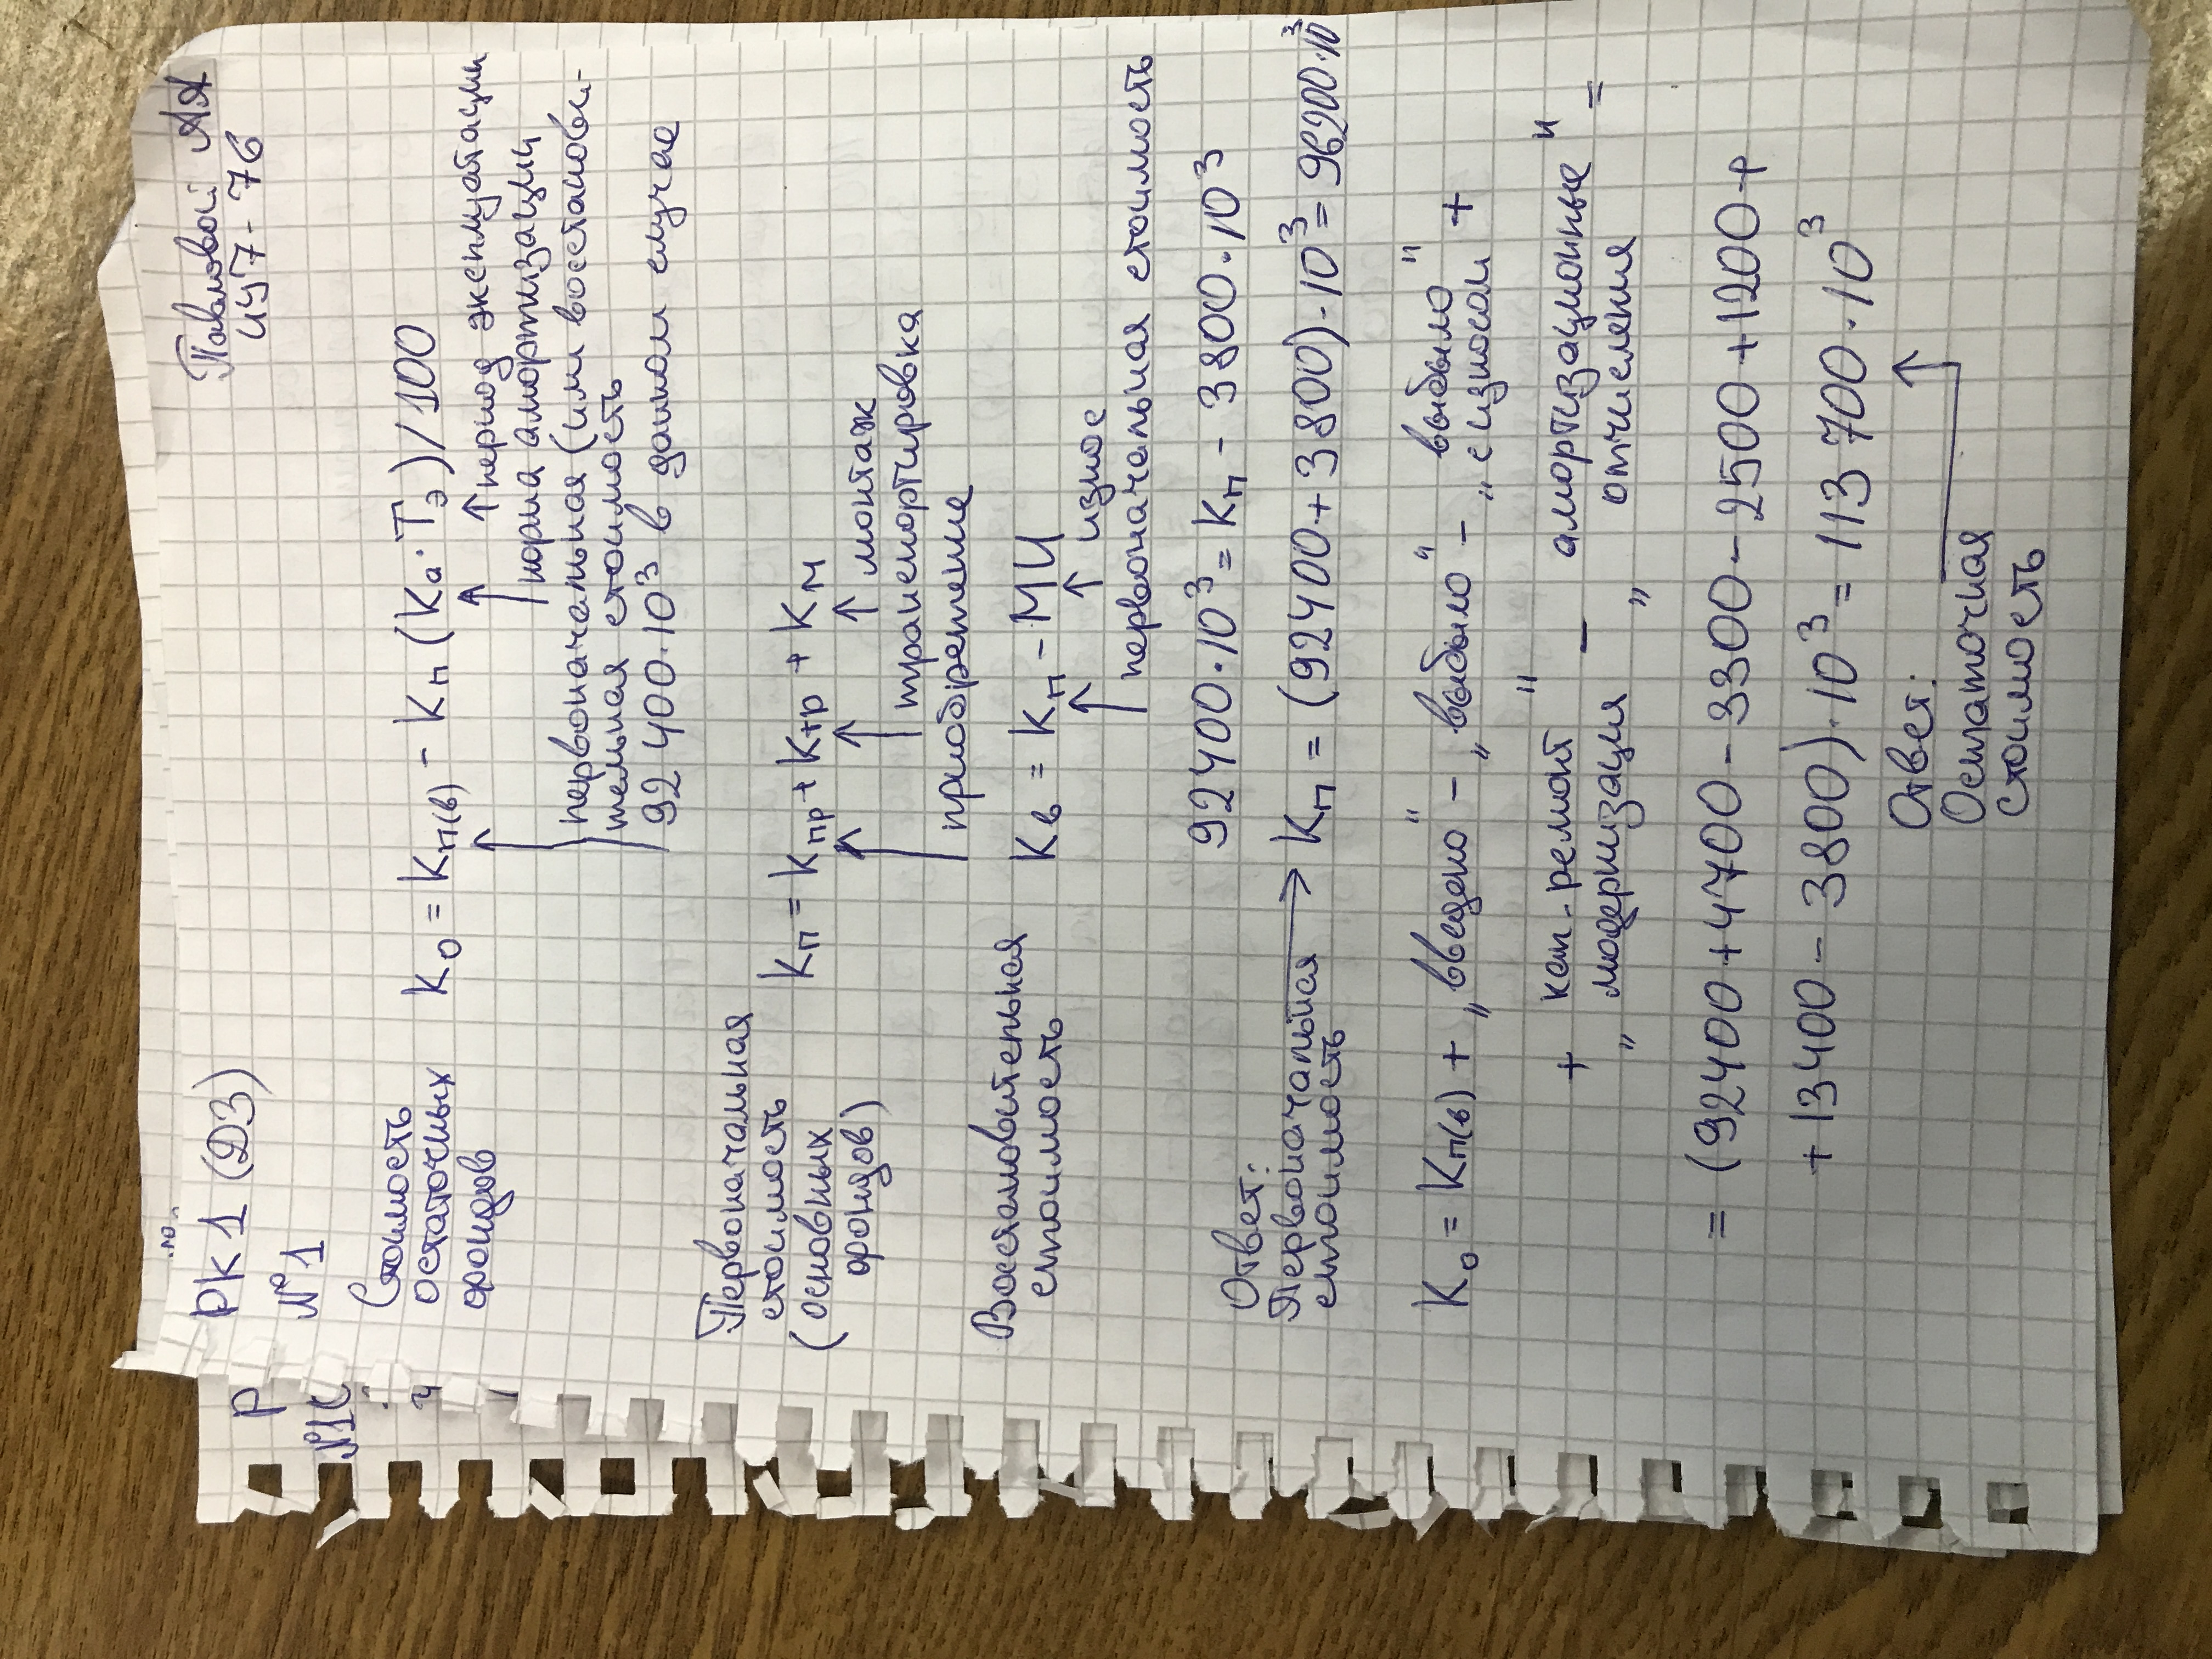 РК 1 (ДЗ)
Павловой АА
ИУ7-76
№1
Стоимость
остаточных
фондов
Kо = Kп(в) - Kп (Kа · Tэ) / 100
период эксплуатации
норма амортизации
первоначальная (или восстанови-
тельная стоимость
92 400·10³ в данном случае
Первоначальная
стоимость
(основных
фондов)
Kп = Kпр + Kтр + Kм
монтаж
транспортировка
приобретение
Восстановительная
стоимость
Kв = Kп - МИ
износ
первоначальная стоимость
92400·10³ = Kп - 3800·10³
Ответ:
Первоначальная
стоимость
Kп = (92400 + 3800)·10³ = 96200·10³
Kо = Kп(в) + „введено" - „выбыло" - „выбыло с износом" +
+ „кап-ремонт модернизация" - „амортизационные отчисления" =
= (92400 + 4700 - 3300 - 2500 + 1200 +
+ 13400 - 3800)·10³ = 113 700·10³
Ответ:
Остаточная
стоимость
Р
№1